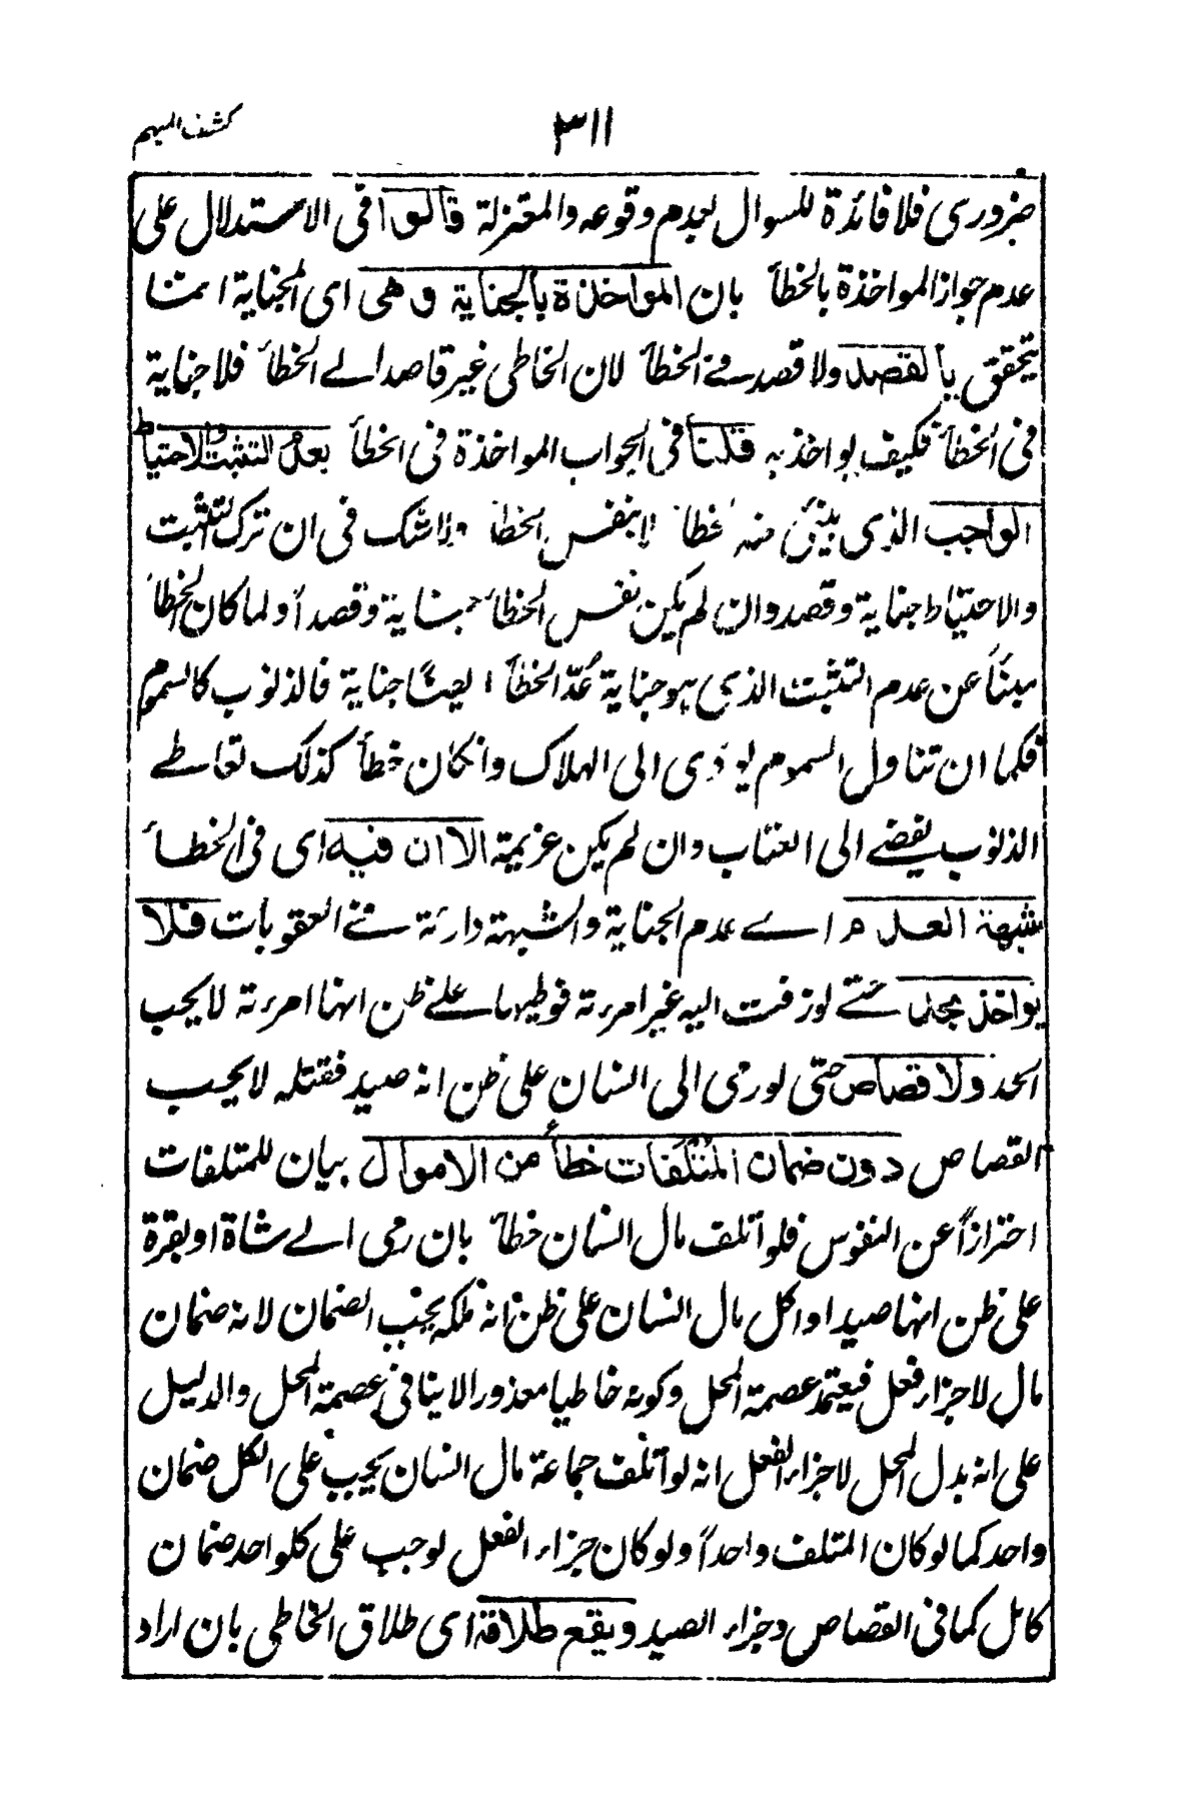 كشف المبهم
٣١١
ضروري فلا فائدة للسوال لعدم وقوعه والمعتزلة قالوا في الاستدلال على
عدم جواز المواخذة بالخطأ بان المواخذة بالجناية وهي اى الجناية انما
يتحقق بالقصد ولا قصد في الخطأ لان الخاطى غير قاصد الى الخطأ فلا جناية
في الخطأ فكيف يواخذ به قلنا في الجواب المواخذة في الخطأ بعدم التثبت والاحتياط
الواجب الذى ينبئ منه خطأ لا بنفس الخطأ ولا شك في ان ترك التثبت
والاحتياط جناية وقصد وان لم يكن نفس الخطأ جناية وقصداً ولما كان الخطأ
مبنئاً عن عدم التثبت الذى هو جناية عُدّ الخطأ ايضا جناية فالذنوب كالسموم
فكما ان تناول السموم يودى الى الهلاك وانكان خطأ كذلك تعاطى
الذنوب يفضى الى العقاب وان لم يكن عزيمة الا ان فيه اى في الخطأ
شبهة العدم اى عدم الجناية والشبهة دارئة في العقوبات فلا
يواخذ بحد حتى لو زفت اليه غير امرءته فوطيها على ظن انها امرءته لا يجب
الحد ولا قصاص حتى لو رمى الى انسان على ظن انه صيد فقتله لا يجب
القصاص دون ضمان المُتْلَفات خطأ من الاموال بيان للمتلفات
احترازاً عن النفوس فلو أتلف مال انسان خطأ بان رمى الى شاة او بقرة
على ظن انها صيد او اكل مال انسان على ظن انه ملكه يجب الضمان لانه ضمان
مال لا جزاء فعل فيعتمد عصمة المحل وكونه خاطيا معذورا لا ينافي عصمة المحل والدليل
على انه بدل المحل لا جزاء الفعل انه لو أتلف جماعة مال انسان يجب على الكل ضمان
واحد كما لو كان المتلف واحداً ولو كان جزاء الفعل لوجب على كلواحد ضمان
كامل كما في القصاص وجزاء الصيد ويقع طلاقه اى طلاق الخاطى بان اراد